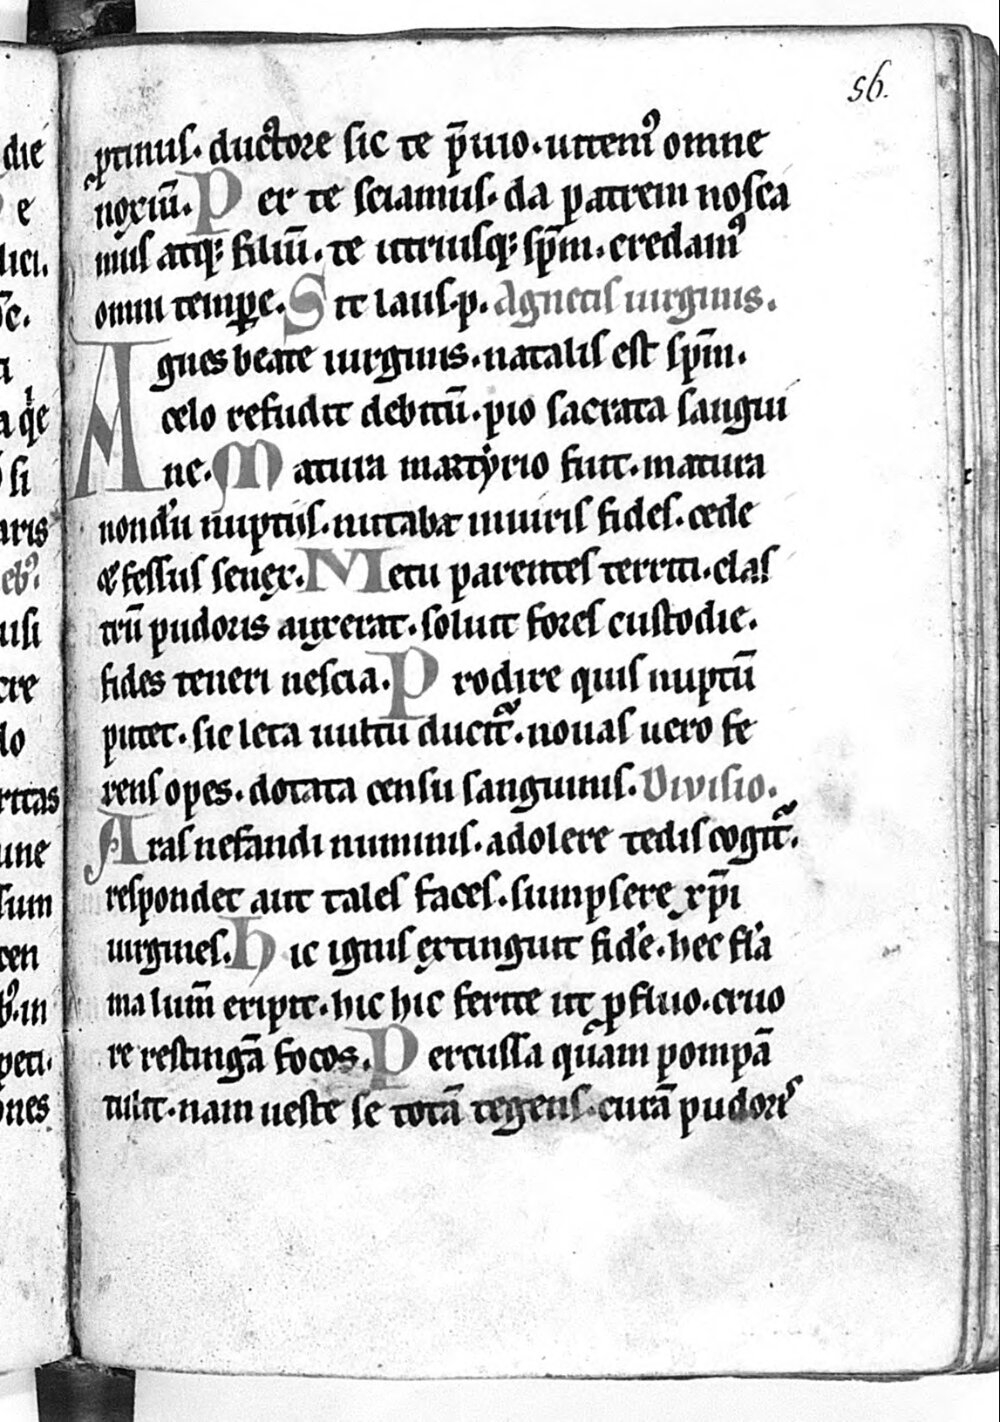 56.
die
ꝓtinus. ductore sic te p̄uio. uitemꝰ omne
e
noxiū. Per te sciamus. da patrem nosca
lici.
mus atq; filiū. te utriusq; sp̄m. credamꝰ
omni tempe. Sit laus. p. Agnetis uirginis.
Agnes beate uirginis. natalis est sp̄m.
a qͥe
celo refudit debitū. pio sacrata sangui
si
ne. Matura martyrio fuit. matura
aris
nondū nuptiis. nutabat inuiris fides. cede
ebꝰ.
& fessus senex. Metu parentes territi. claus
usi
trū pudoris auxerat. soluit fores custodie.
cre
fides teneri nescia. Prodire quis nuptū
lo
putet. sic leta uultu ducit᷑. nouas uero fe
ritas
rens opes. dotata censu sanguinis. Diuisio.
une
Aras nefandi numinis. adolere tedis cogit᷑.
sum
respondet aut tales faces. sumpsere xp̄i
cen
uirgines. Hic ignis extinguit fidē. hec flā
bꝰ. in
ma lumē eripit. hic hic ferite ut ꝓfluo. cruo
peti.
re restingā focos. Percussa quam pompā
ones
tulit. nam ueste se totā tegens. curā pudorꝭ